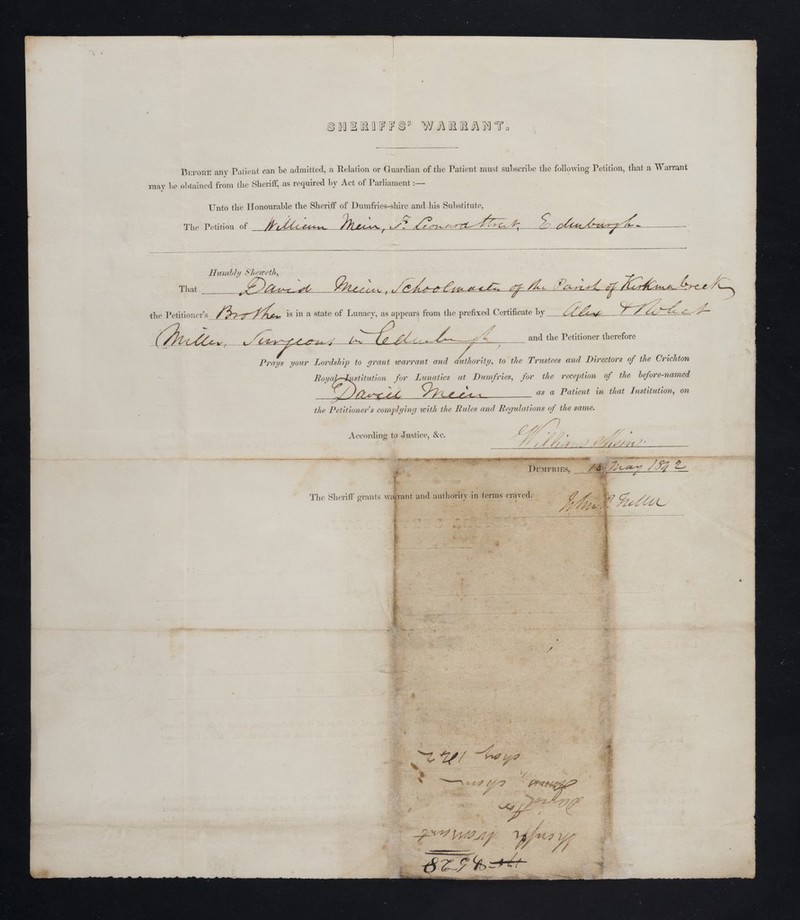 SHERIFFS' WARRANT.
BEFORE any Patient can be admitted, a Relation or Guardian of the Patient must subscribe the following Petition, that a Warrant
may be obtained from the Sheriff, as required by Act of Parliament :—
Unto the Honourable the Sheriff of Dumfries-shire and his Substitute,
The Petition of William Mein, St Leonard Street, Edinburgh.
Humbly Sheweth,
That David Mein, Schoolmaster of the Parish of Kirkmabreck
the Petitioner's Brother is in a state of Lunacy, as appears from the prefixed Certificate by Alex & Robert
Miller, Surgeons in Edinburgh, and the Petitioner therefore
Prays your Lordship to grant warrant and authority, to the Trustees and Directors of the Crichton
Royal Institution for Lunatics at Dumfries, for the reception of the before-named
David Mein as a Patient in that Institution, on
the Petitioner's complying with the Rules and Regulations of the same.
According to Justice, &c. William Mein
DUMFRIES, May 1842
The Sheriff grants warrant and authority in terms craved.
John
Sheriff Warrant
David Mein
May 1842